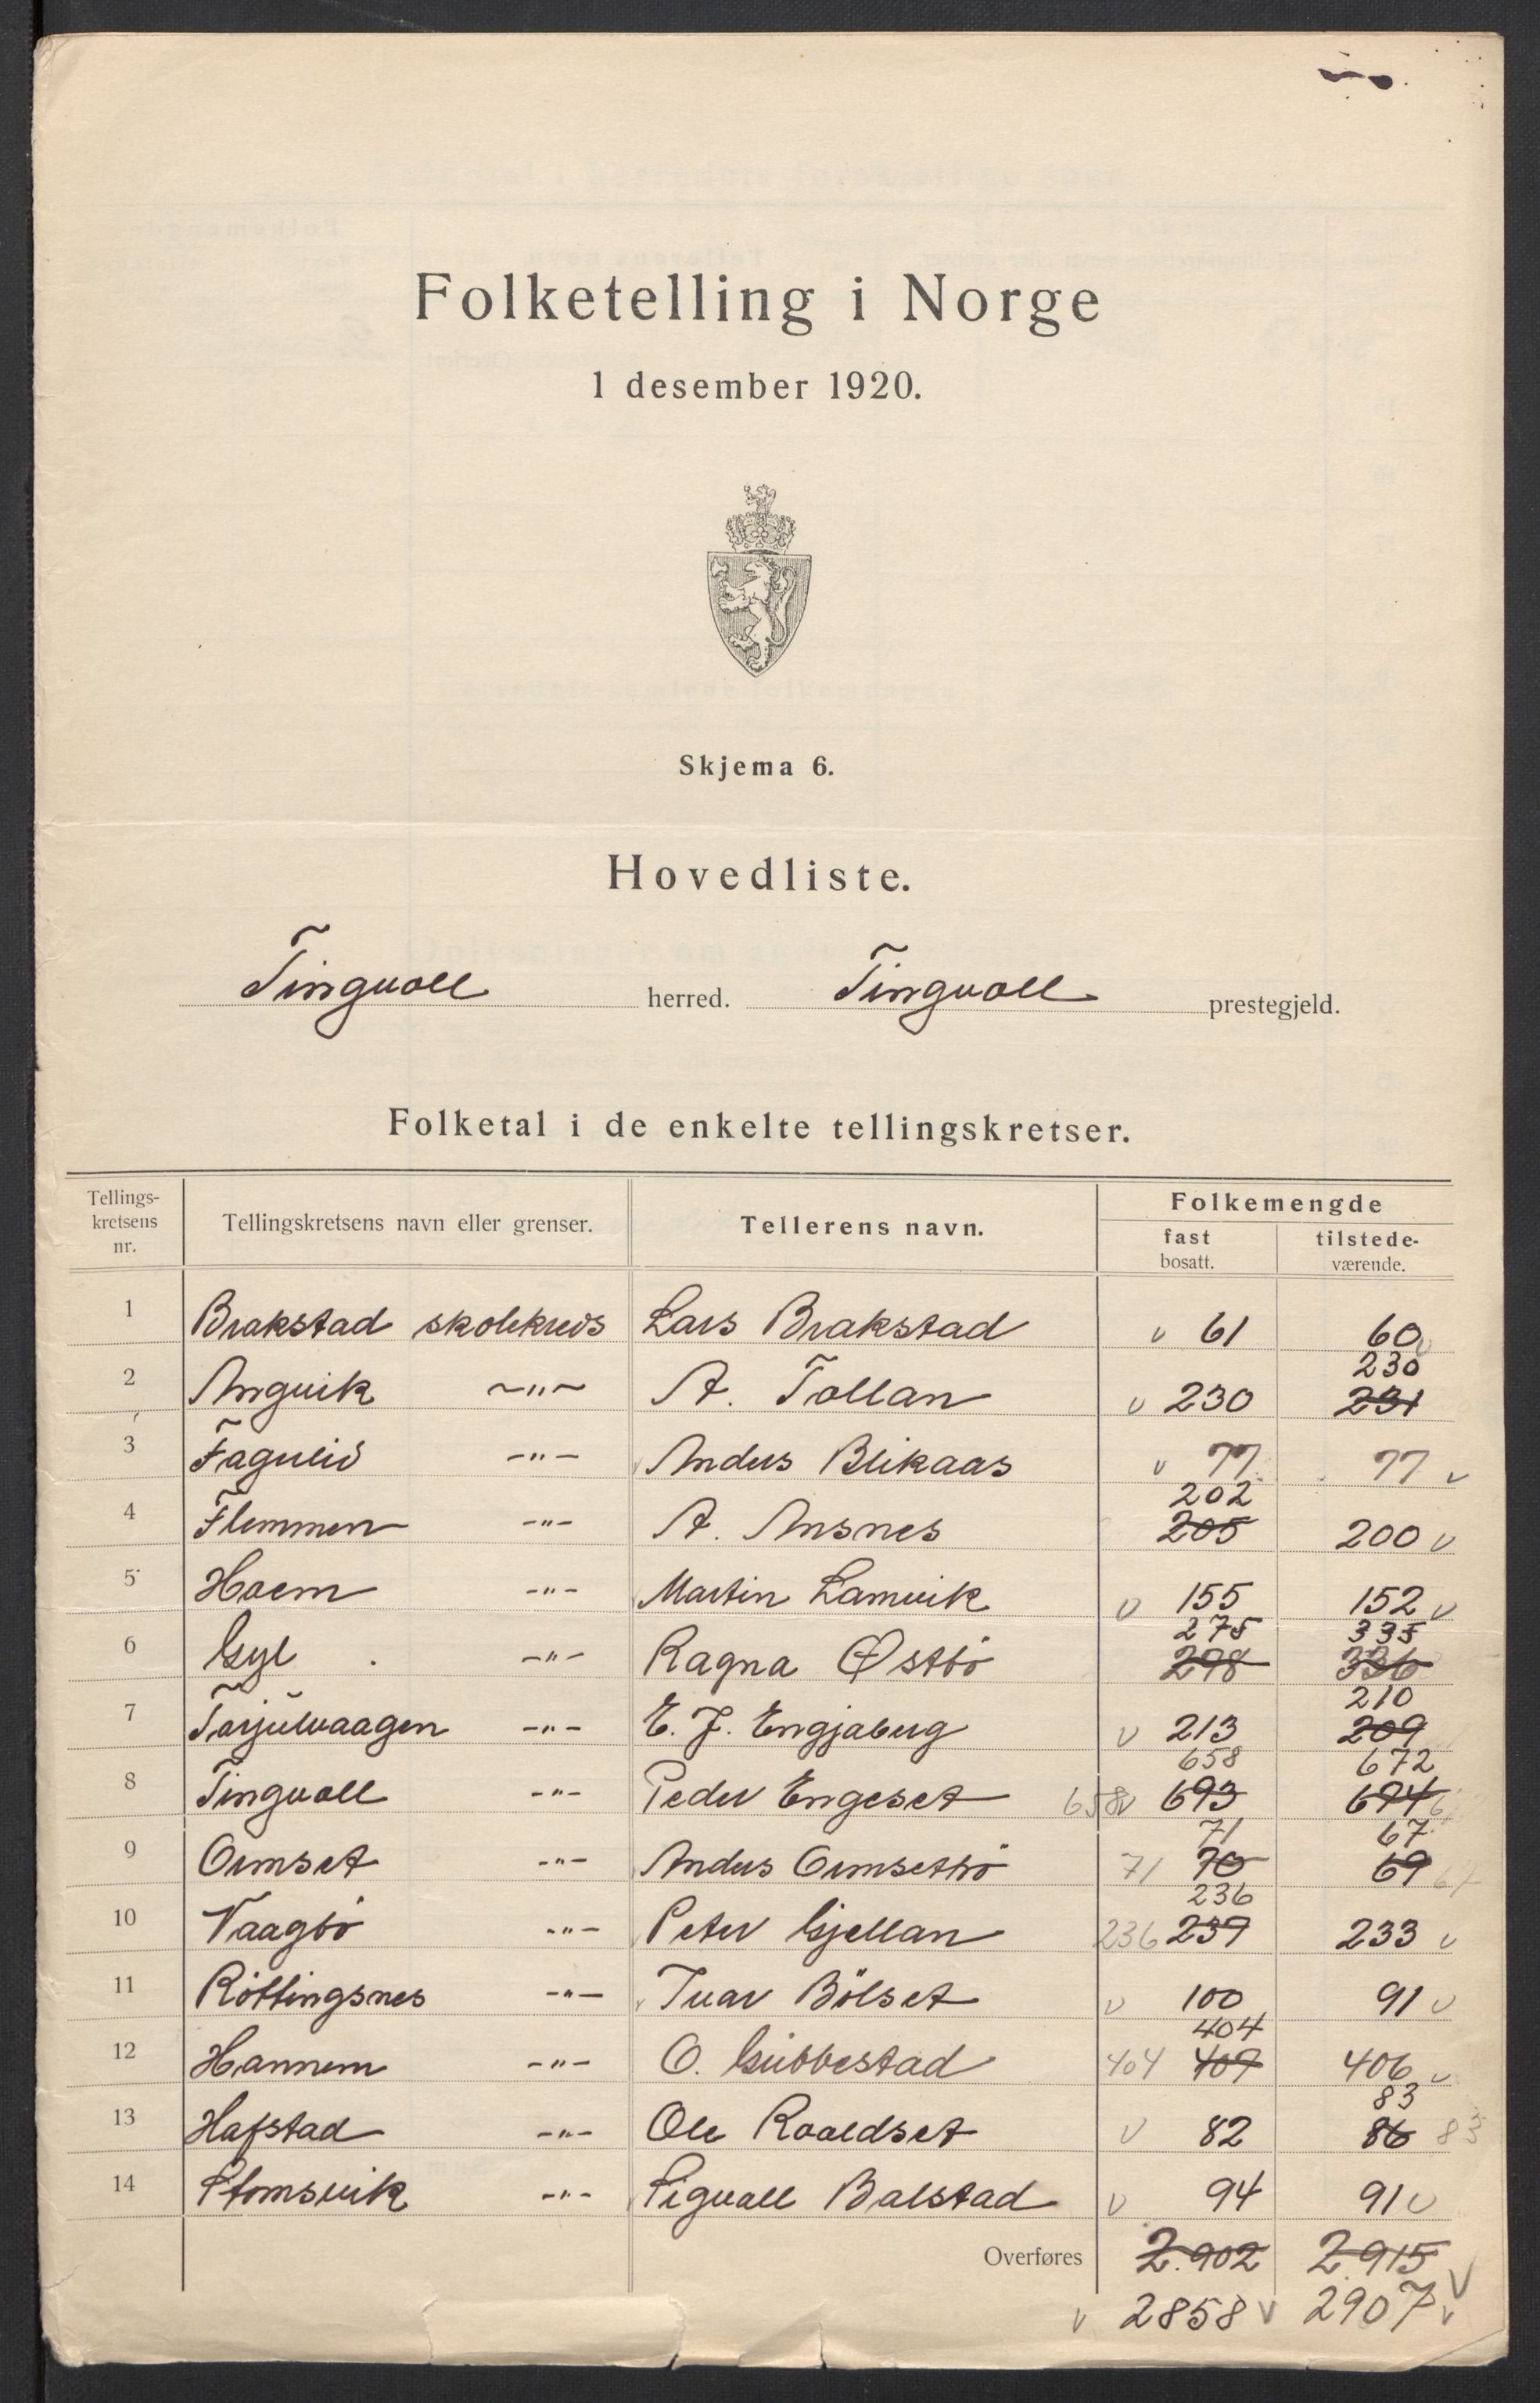 Folketelling i Norge
1 desember 1920.
Skjema 6.
Hovedliste.
Tingvoll herred. Tingvoll prestegjeld.
Folketal i de enkelte tellingskretser.
Tellings-kretsens nr. Tellingskretsens navn eller grenser. Tellerens navn. Folkemengde fast bosatt. tilstede-værende.
1 Brakstad skolekreds Lars Brakstad v 61 60 v
230
2 Angvik -"- A. Tollan v 230 231
3 Fagerlid -"- Anders Blikaas v 77 77 v
202
4 Flemmen -"- A. Ansnes 205 200 v
5 Hoem -"- Martin Lamvik v 155 152 v
275 335
6 Gyl -"- Ragna Østbö 298 336
210
7 Torjulvaagen -"- E. J. Engjaberg v 213 209
658 672
8 Tingvoll -"- Peder Engeset 658 v 693 674
71 67
9 Ormset -"- Anders Ormsetbö 71 70 69 67
236
10 Vaagbö -"- Peter Gjellan 236 239 233 v
11 Röttingsnes -"- Ivar Bölset v 100 91 v
404
12 Hannem -"- O. Gübbestad 404 409 406 v
83
13 Hafstad -"- Ole Roaldset v 82 86 83
14 Stomsvik -"- Sigvall Balstad v 94 91 v
Overføres 2.902 2.915 v
v 2858 v 2907 v